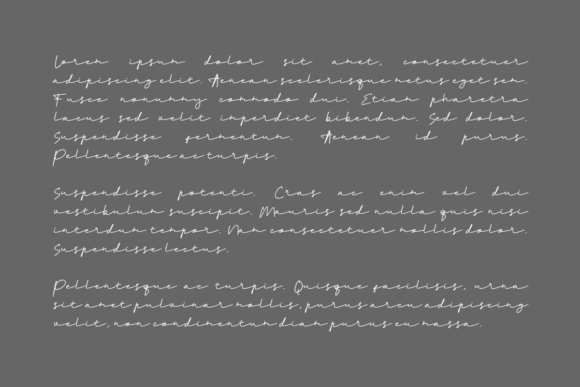 Lorem ipsum dolor sit amet, consectetuer
adipiscing elit. Aenean scelerisque metus eget sem.
Fusce nonummy commodo dui. Etiam pharetra
lacus sed velit imperdiet bibendum. Sed dolor.
Suspendisse fermentum. Aenean id purus.
Pellentesque ac turpis.
Suspendisse potenti. Cras ac enim vel dui
vestibulum suscipit. Mauris sed nulla quis nisi
interdum tempor. Nam consectetuer mollis dolor.
Suspendisse lectus.
Pellentesque ac turpis. Quisque facilisis, urna
sit amet pulvinar mollis, purus arcu adipiscing
velit, non condimentum diam purus eu massa.